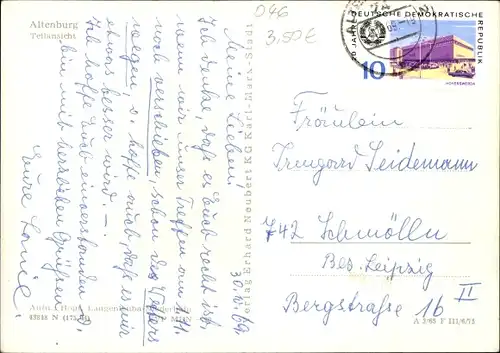 Altenburg
Teilansicht
046
3,50€
30.10.69
Meine Lieben!
Ich denke, daß es Euch recht ist,
wenn wir unser Treffen am 1.11.
noch verschieben, schon des Wetters
wegen, u. hoffe auch, daß es mir
etwas besser wird. –
Ich hoffe Euch einverstanden u.
bin mit herzlichen Grüßen
Eure
Verlag Erhard Neubert KG Karl-Marx-Stadt
DEUTSCHE DEMOKRATISCHE
REPUBLIK
20 JAHRE
10
HOYERSWERDA
Fräulein
Irmgard Seidemann
742 Schmölln
Bez. Leipzig
Bergstraße 16 II
A 3/65 F III/6/75